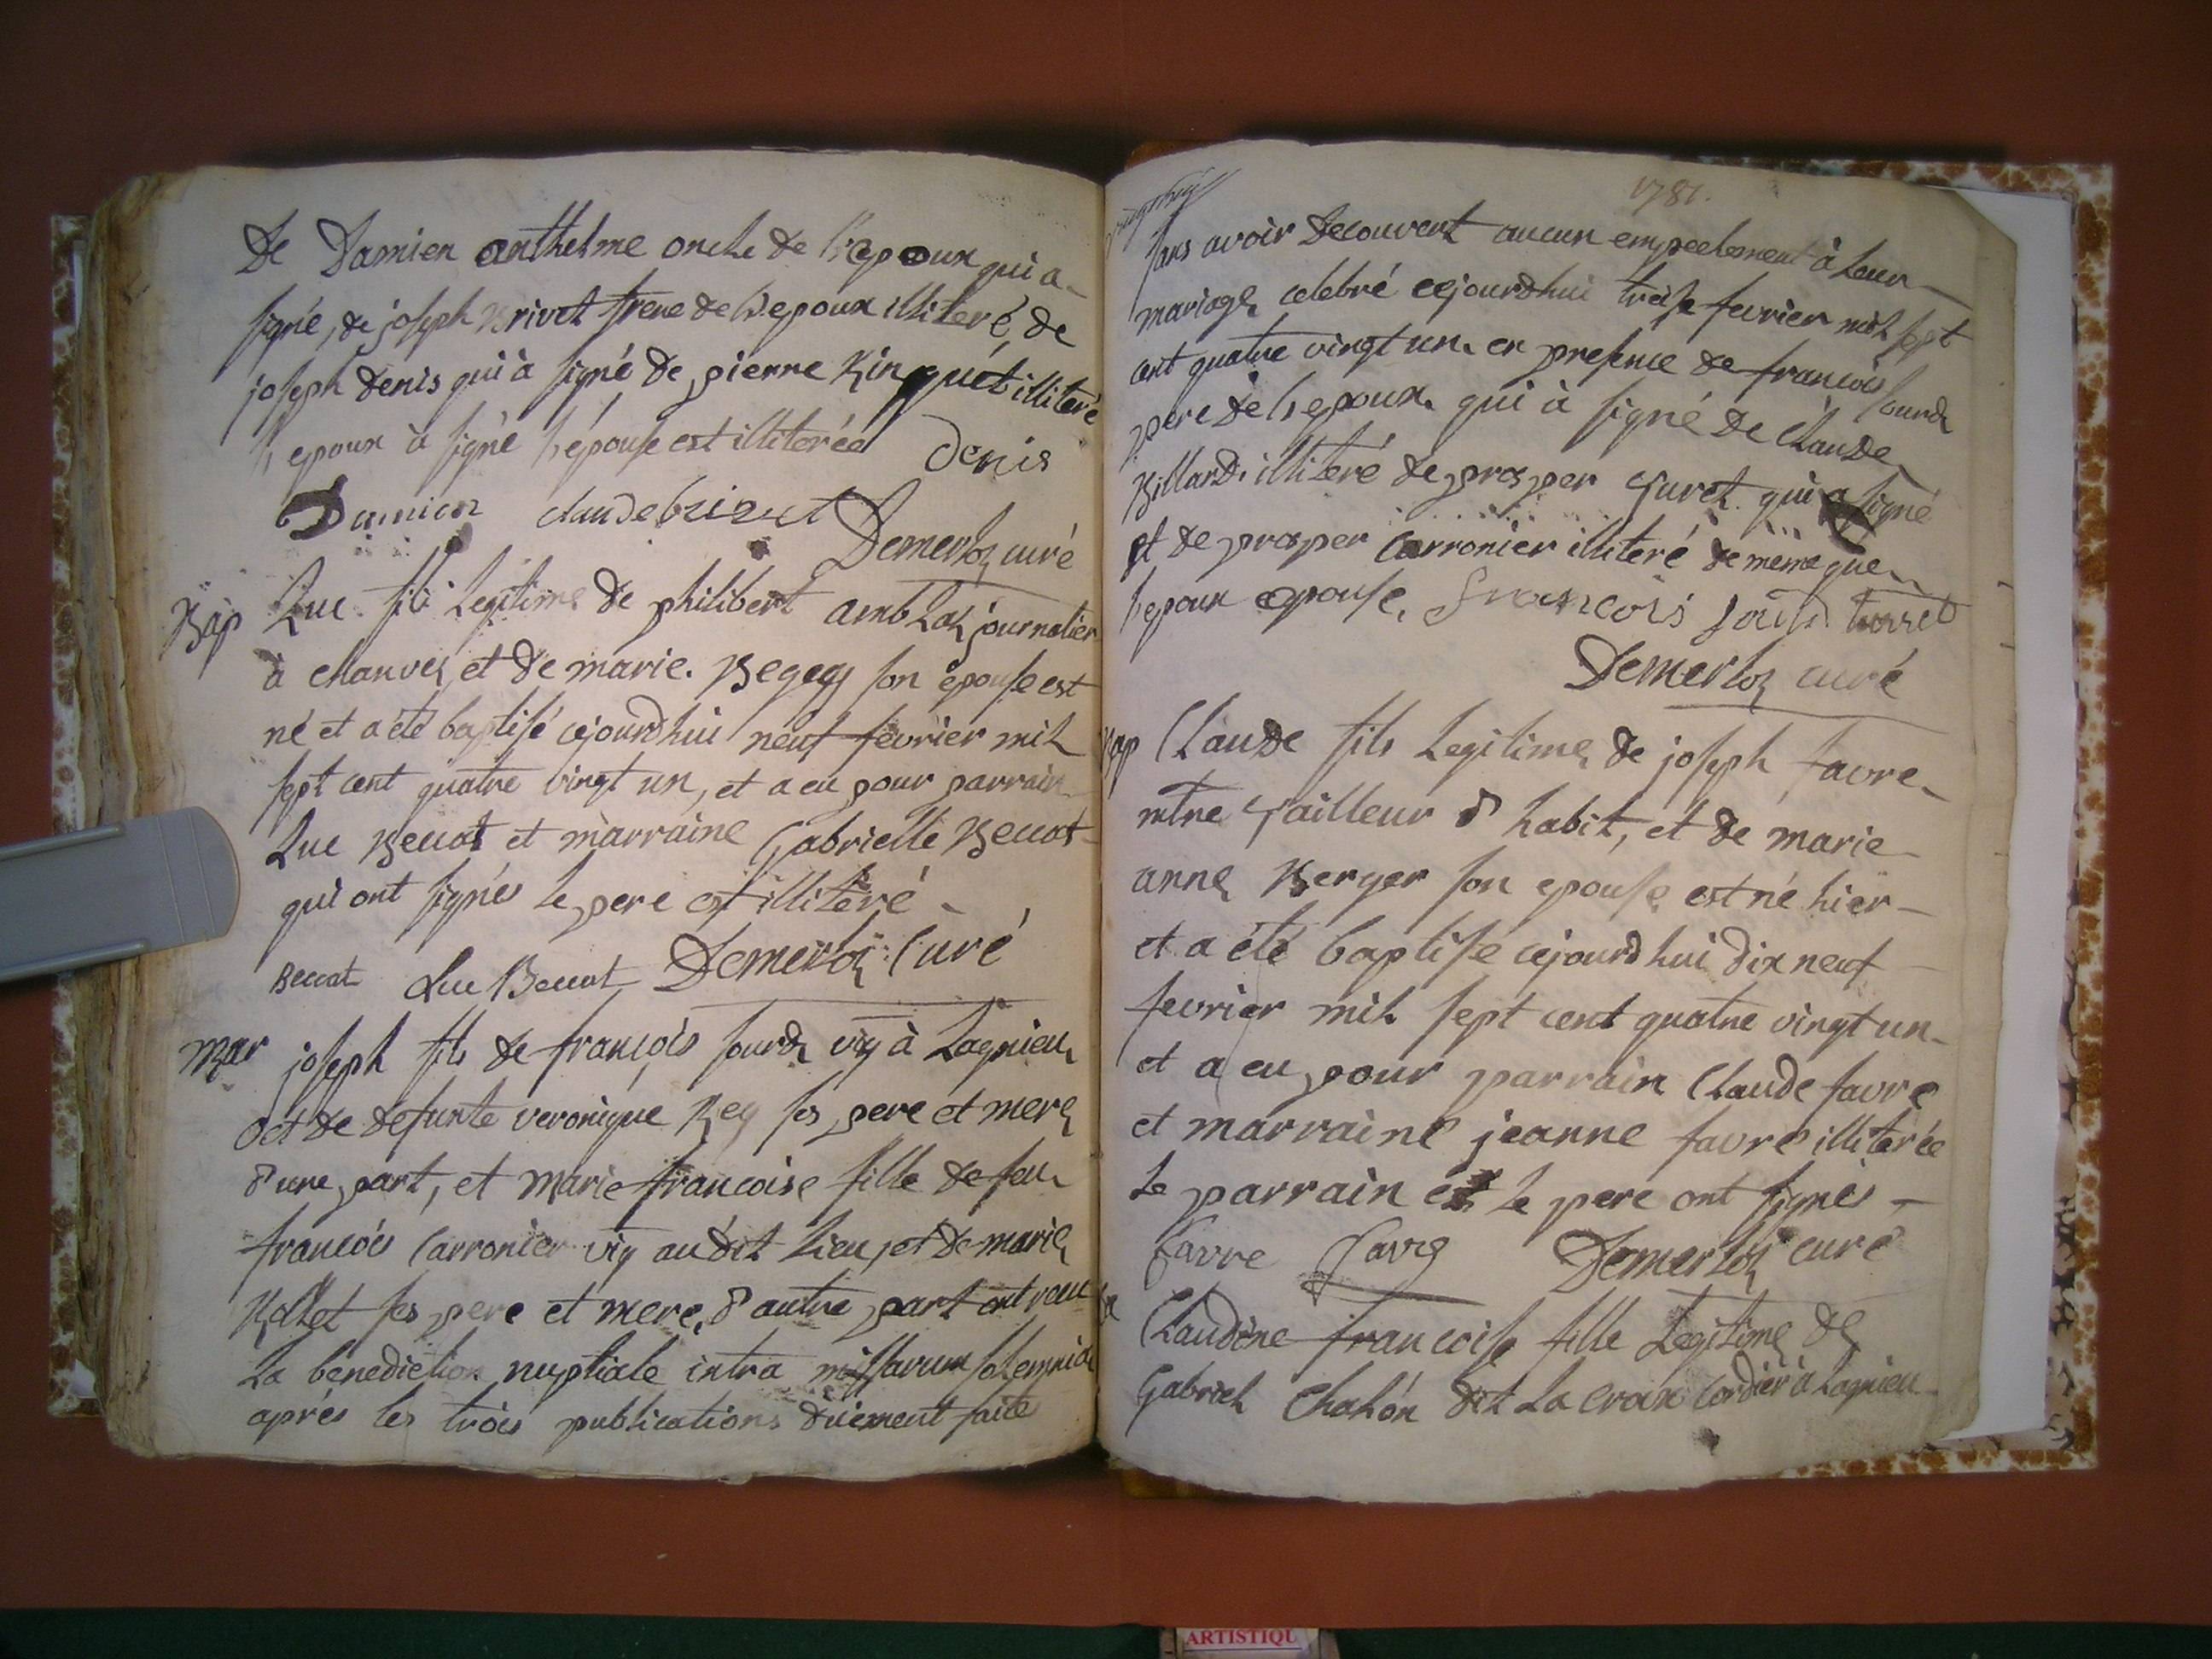 De Damien anthelme oncle de l'epoux qui a
signé, de joseph Brivet frere de l'epoux illiteré, de
joseph denis qui à signé de pierre Rinquét illiteré
l'epoux à signé l'épouse est illiterée Denis
Damien claude brivet
Demerloz curé
Bap Luc fils Legitime de philibert amblaz journalier
à chanves et de marie. Begey son épouse est
né et a été baptisé cejourdhui neuf fevrier mil
sept cent quatre vingt un, et a eu pour parrain
Luc Beccat et marraine Gabrielle Beccat
qui ont signés le pere est illiteré
Beccat Luc Beccat Demerloz Curé
Mar joseph fils de françois sourd vig à Lagnieu
et de defunte veronique Rey ses pere et mere
d'une part, et Marie françoise fille de feu
françois Carronier vig audit lieu, et de marie
Rollet ses pere et mere, d'autre part ont reçu
La benediction nuptiale intra missarum solemnia
après les trois publications duement faite
1781.
sans avoir decouvert aucun empechement à leur
mariage celebré cejourdhui treise fevrier mil sept
cent quatre vingt un en presence de françois sourd
pere de l'epoux qui à signé de Claude
Billard illiteré de prosper Turet qui a signé
et de prosper Carronier illiteré de même que
l'epoux epouse. François sourd turret
Demerloz curé
Bap Claude fils Legitime de joseph favre
mtre Tailleur d'habit, et de marie
anne Berger son epouse est né hier
et a été baptisé cejourdhui dix neuf
fevrier mil sept cent quatre vingt un
et a eu pour parrain Claude favre
et marraine jeanne favre illiterée
Le parrain et le pere ont signés
favre favre Demerloz curé
Claudine françoise fille Legitime de
Gabriel Chalon dit La croix Cordier à Lagnieu
ARTISTIQU